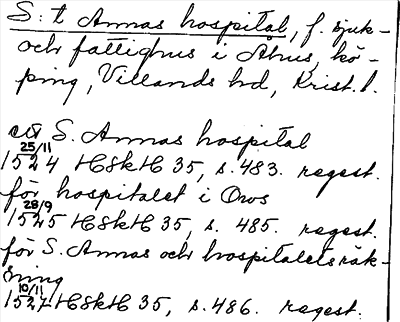 S:t Annas hospital, f. sjuk-
och fattighus i Åhus, kö-
ping, Villands hd, Krist. l.
av S. Annas hospital
25/11
1524 HSkH 35, s. 483. regest.
för hospitalet i Oos
28/9
1525 HSkH 35, s. 485. regest.
för S. Annas och hospitalets räk-
ning
10/11
1527 HSkH 35, s. 486. regest.